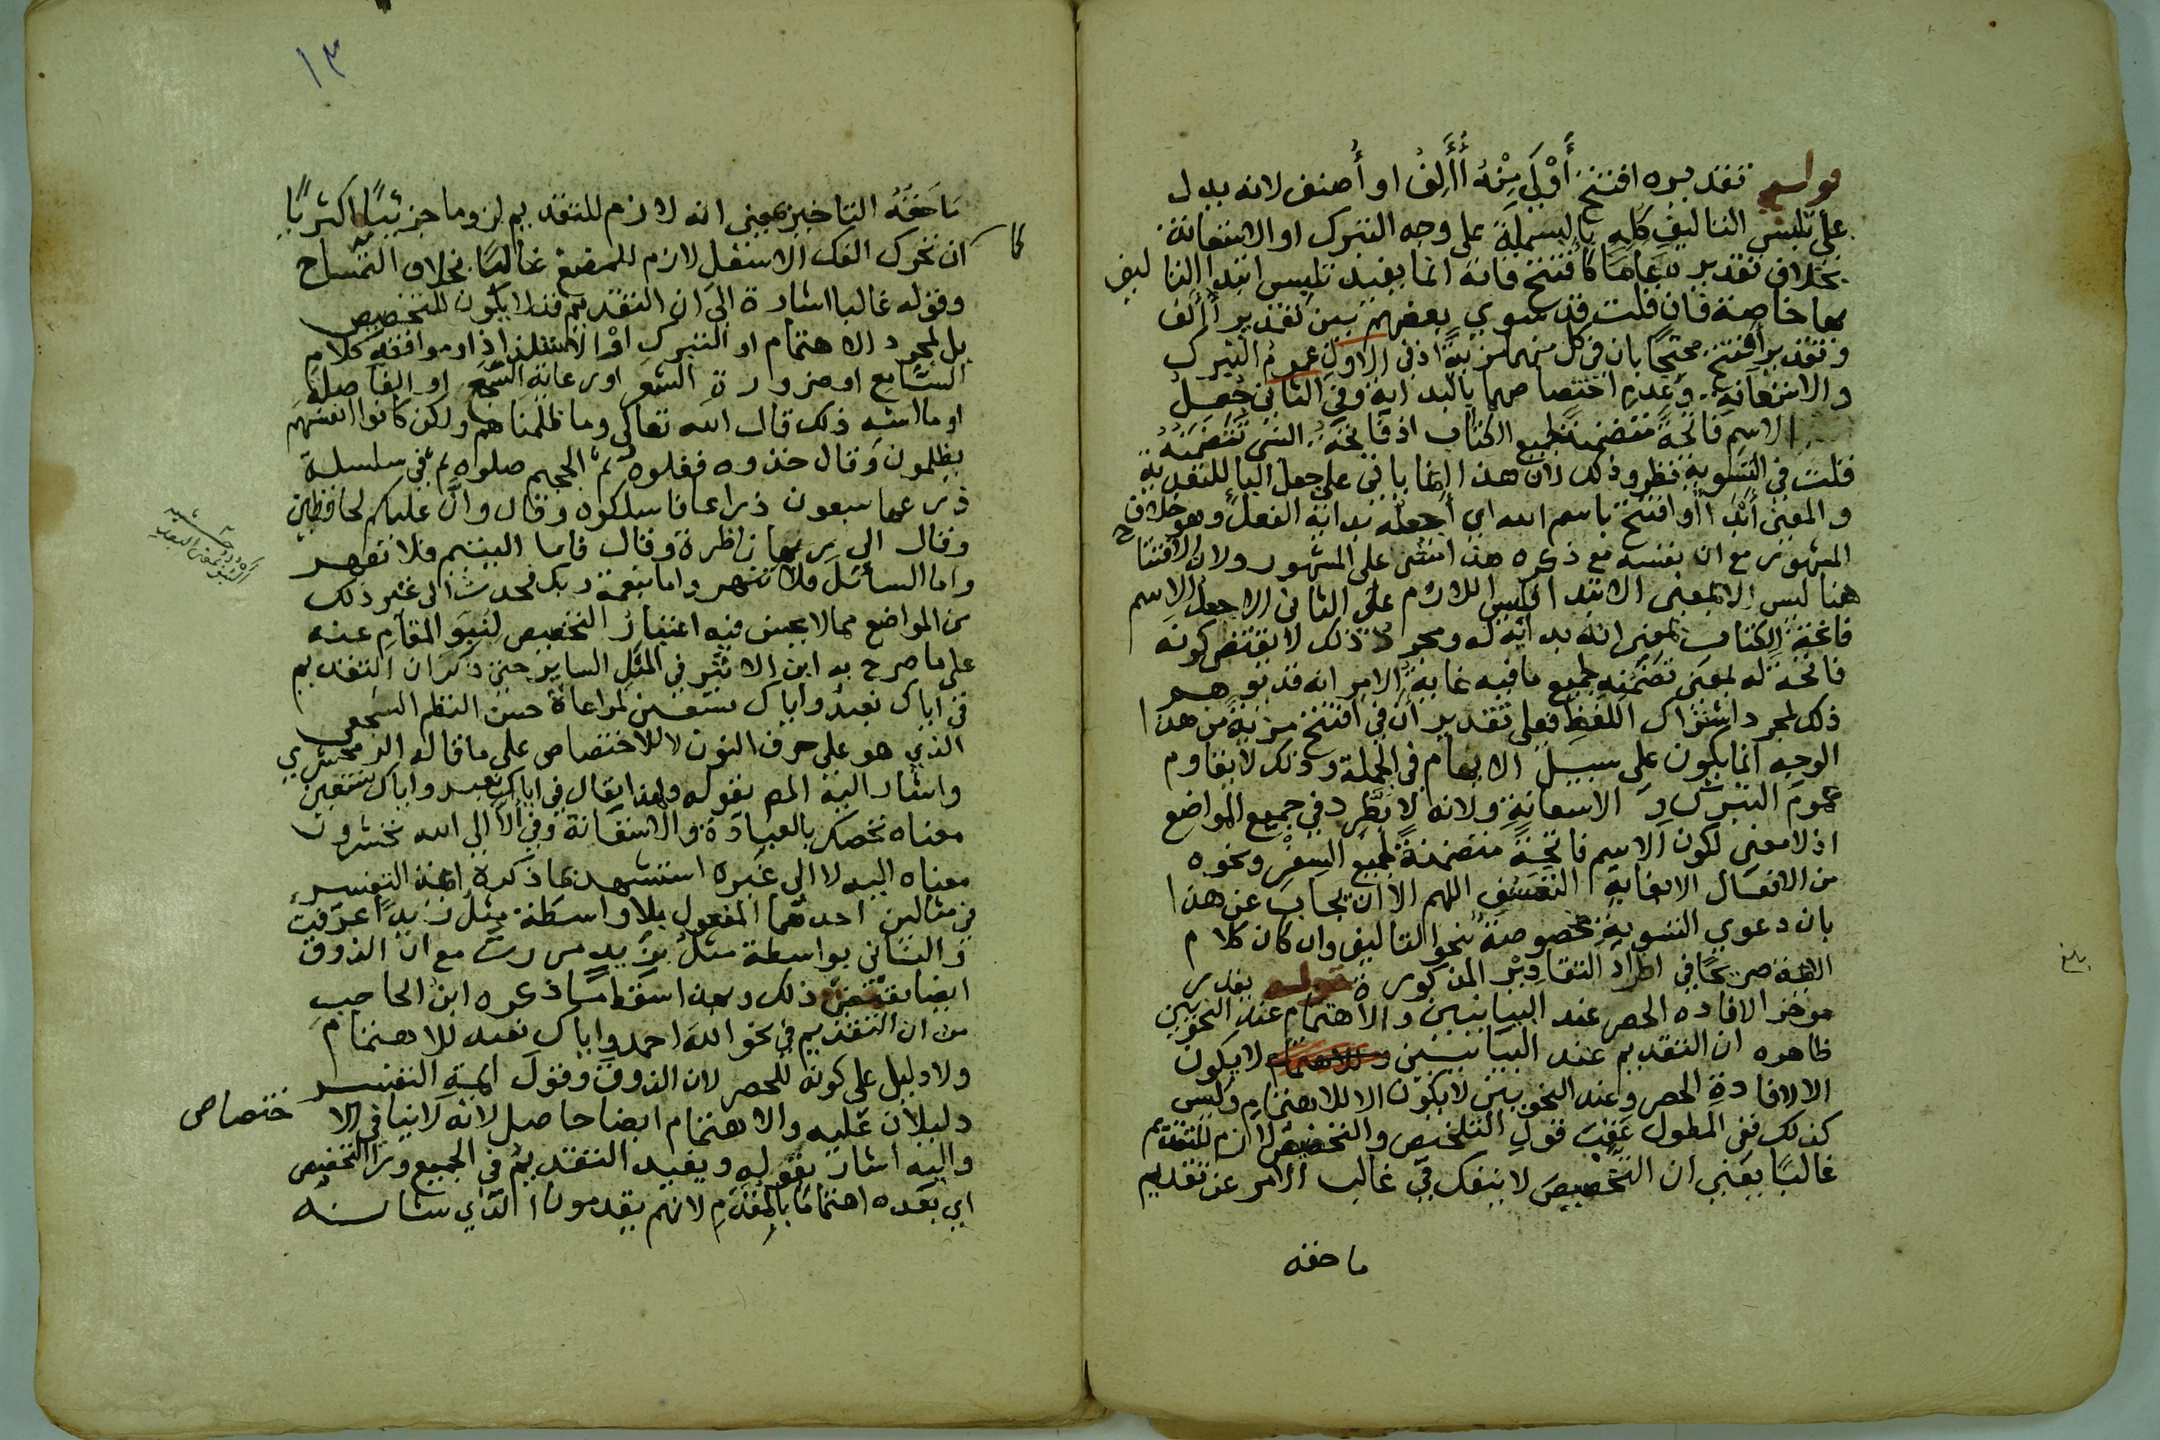 قوله تقديره افتتح أَوْلَى مِنْهُ أُأَلِفُ او أُصنف لانه يدل
على تلبس التاليف كله بالبسملة على وجه التبرك او الاستعانة
بخلاف تقدير عاما كافتتح فانه انما يفيد تلبس ابتدا التاليف
بها خاصة فان قلت قد سوي بعضهم بين تقدير أُألف
وتقدير أفتتح محتجًا بان في كل منهما مزيةً اذ في الاول عموم التبرك
والاستعانةِ وعدمِ اختصاصهما بالبداية وفي الثاني جُعِلَ
الاسم فاتحةً متضمنة لجميع الكتاب اذ فاتحة الشي تتضمنه
قلت في التسوية نظر وذلك لان هذا انما ياتي على جعل البا للتعدية
والمعنى أبدأ أو افتتح باسم الله اي أجعله بداية الفعل وهو خلاف
المشهور مع ان نفسه مع ذكره هذا مشى على المشهور ولان الافتتاح
هنا ليس الا بمعنى الابتدا اذ ليس اللازم على الثاني الا جعل الاسم
فاتحة الكتاب بمعنى انه بداية له ومجرد ذلك لا يقتضى كونه
فاتحة له بمعنى تضمنه لجميع ما فيه غاية الامر انه قد يوهم
ذلك لمجرد اشتراك اللفظ فعلى تقدير ان في أفتتح مزيةً من هذا
الوجه انما يكون على سبيل الايهام في الجملة وذلك لا يقاوم
عموم التبرك و الاستعانةِ ولانه لا يَطَّرِد في جميع المواضع
اذ لا معنى لكون الاسم فاتحةً متضمنةً لجميع السفر ونحوه
من الافعال الا بغاية التعسف اللهم الا ان يجاب عن هذا
بان دعوي التسوية مخصوصة بنحو التاليف وان كان كلام
الائمة صريحًا في اطراد التقادير المذكورة قوله يقدر
موخرا لافاده الحصر عند البيانيين والاهتمام عند النحويين
ظاهره ان التقديم عند البيانيين لا يكون
الا لافادة الحصر وعند النحويين لا يكون الا للاهتمام وليس
كذلك ففي المطول عقب قول التلخيص والتخصيص لازم للتقديم
غالبًا يعني ان التخصيصَ لا ينفك في غالب الامر عن تقديم
ما حقه
بلغ
١٣
مَا حَقُّهُ التاخير بمعنى انه لازم للتقديم لزوما جزئيًا اكثريًا كما
ان تحرك الفك الاسفل لازم للمضغ غالبًا بخلاف التمساح
وقوله غالبا اشارة الى ان التقديم قد لا يكون للتخصيص
بل لمجرد الاهتمام او التبرك او الاستلذاذ او موافقة كلام
السامع او ضرورة الشعر او رعاية السجع او الفاصلة
او ما اشبه ذلك قال الله تعالى وما ظلمناهم ولكن كانوا انفسهم
يظلمون وقال خذوه فغلوه ثم الجحيم صلوه ثم في سلسلة
ذرعها سبعون ذراعا فاسلكوه وقال وانَّ عليكم لحافظين
وقال الى ربها ناظرة وقال فاما اليتيم فلا تقهر
واما السائل فلا تنهر واما بنعمة ربك فحدث الى غير ذلك
من المواضع مما لا يحسن فيه اعتبار التخصيص لنبو المقام عنه
على ما صرح به ابن الاثير في المثل الساير حتى ذكر ان التقديم
في اياك نعبد واياك نستعين لمراعاة حسن النظم السجعي
الذي هو على حرف النون لا للاختصاص على ما قاله الزمخشري
واشار اليه المص بقوله ولهذا يقال في اياك نعبد واياك نستعين
معناه نخصك بالعبادة والاستعانة وفي لألى الله تحشرون
معناه اليه لا الى غيره استشهد بما ذكره ائمة التفسير
في مثالين احدهما المفعول بلا واسطة مثل زيدًا عرفت
والثاني بواسطة مثل بزيد مررت مع ان الذوق
ايضا يقتضي ذلك وبهذا سقط ما ذكره ابن الحاجب
من ان التقديم في نحو الله احمد واياك نعبد للاهتمام
ولا دليل على كونه للحصر لان الذوق وقول ايمة التفسير
دليلان عليه والاهتمام ايضا حاصل لانه لا ينافي الاختصاص
واليه اشار بقوله ويفيد التقديم في الجميع ورا التخصيص
اي بعده اهتمامًا بالمقدم لانهم يقدمون الذي شانه